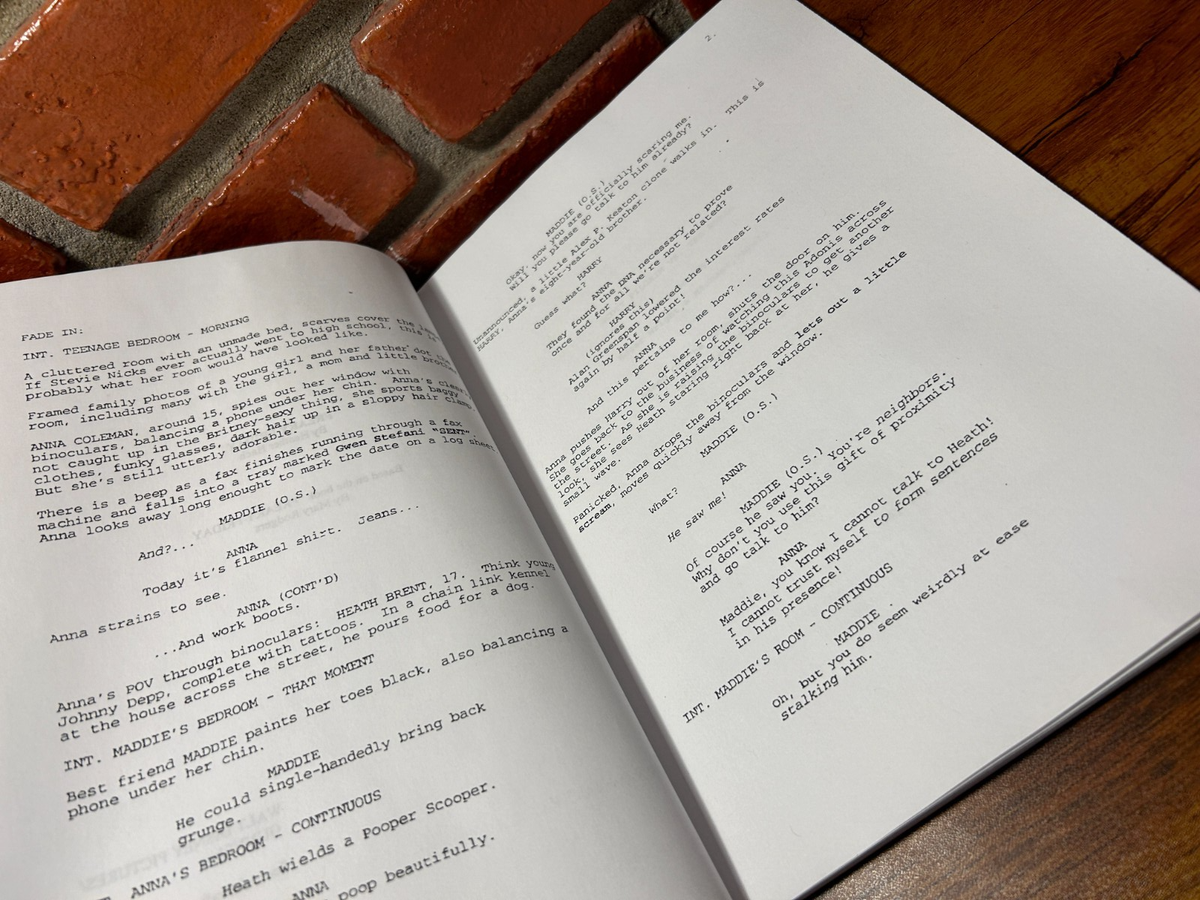 FADE IN:
INT. TEENAGE BEDROOM - MORNING
A cluttered room with an unmade bed, scarves cover the
If Stevie Nicks ever actually went to high school, this is
probably what her room would have looked like.
Framed family photos of a young girl and her father dot the
room, including many with the girl, a mom and little brother
ANNA COLEMAN, around 15, spies out her window with
binoculars, balancing a phone under her chin. Anna's
not caught up in the Britney-sexy thing, she sports baggy
clothes, funky glasses, dark hair up in a sloppy hair clamp
But she's still utterly adorable.
There is a beep as a fax finishes running through a fax
machine and falls into a tray marked Gwen Stefani "SENT"
Anna looks away long enough to mark the date on a log sheet
MADDIE (O.S.)
And?...
ANNA
Today it's flannel shirt. Jeans...
Anna strains to see.
ANNA (CONT'D)
...And work boots.
Anna's POV through binoculars: HEATH BRENT, 17. Think young
Johnny Depp, complete with tattoos. In a chain link kennel
at the house across the street, he pours food for a dog.
INT. MADDIE'S BEDROOM - THAT MOMENT
Best friend MADDIE paints her toes black, also balancing a
phone under her chin.
MADDIE
He could single-handedly bring back
grunge.
ANNA'S BEDROOM - CONTINUOUS
Heath wields a Pooper Scooper.
ANNA
poop beautifully.
2.
MADDIE (O.S.)
Okay, now you are officially scaring me.
Will you please go talk to him already?
Unannounced, a little Alex P. Keaton clone walks in. This is
HARRY, Anna's eight-year-old brother.
HARRY
Guess what?
ANNA
They found the DNA necessary to prove
once and for all we're not related?
HARRY
(ignores this)
Alan Greenspan lowered the interest rates
again by half a point!
ANNA
And this pertains to me how?...
Anna pushes Harry out of her room, shuts the door on him.
She goes back to the business of watching this Adonis across
the street. As she is raising the binoculars to get another
look, she sees Heath staring right back at her, he gives a
small wave.
Panicked, Anna drops the binoculars and lets out a little
scream, moves quickly away from the window.
MADDIE (O.S.)
What?
ANNA
He saw me!
MADDIE (O.S.)
Of course he saw you; you're neighbors.
Why don't you use this gift of proximity
and go talk to him?
ANNA
Maddie, you know I cannot talk to Heath!
I cannot trust myself to form sentences
in his presence!
INT. MADDIE'S ROOM - CONTINUOUS
MADDIE
Oh, but you do seem weirdly at ease
stalking him.